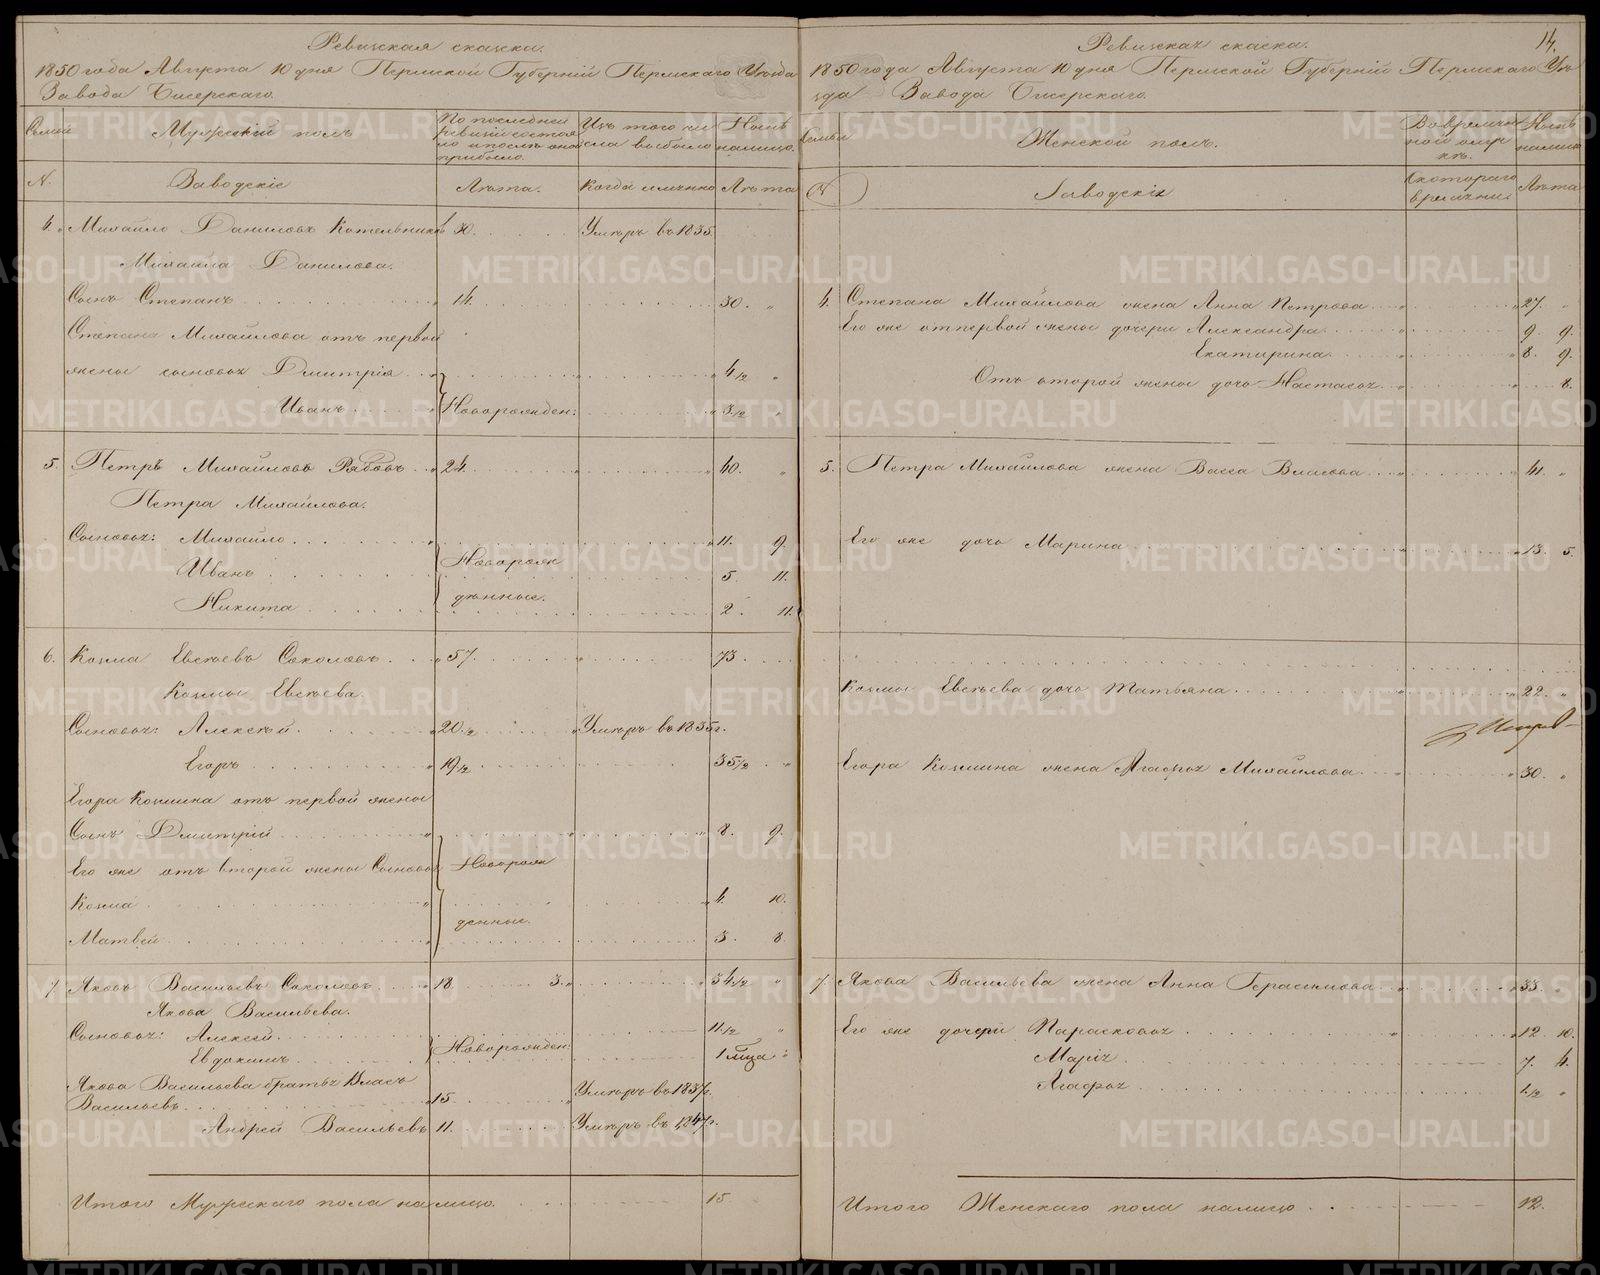 Ревизская сказка.
1850 года Августа 10 дня Пермской Губерніи Пермскаго Уѣзда
Завода Бисерскаго.
Семьи
Мужескій полъ
По последней ревизіи состояло и послѣ оной прибыло.
Изъ того числа выбыло
Нынѣ налицо.
N.
Заводскіе
Лѣта.
Когда имянно
Лѣта
4. Михайло Даниловъ Котельниковъ 50. Умеръ въ 1835.
Михайла Данилова.
Сынъ Степанъ 14. 30. "
Степана Михайлова отъ первой
жены сыновья Дмитрій 4 1/2 "
Иванъ Новорожден: 3 1/2 "
5. Петръ Михайловъ Рябовъ 24. 40. "
Петра Михайлова.
Сыновья: Михайло 11. 9.
Иванъ Новорож 5. 11.
Никита денные. 2. 11.
6. Козма Евсѣевъ Соколовъ 57. 73.
Козмы Евсѣева.
Сыновья: Алексѣй 20 1/2 Умеръ въ 1835 г.
Егоръ 19 1/2 35 1/2 "
Егора Козмина отъ первой жены
Сынъ Дмитрій 8. 9.
Его же отъ второй жены Сыновья Новорож
Козма 4. 10.
денные.
Матвѣй 3. 8
7. Яковъ Васильевъ Соколовъ 18. 3. 34 1/2 "
Якова Васильева.
Сыновья: Алексѣй 11 1/2 "
Евдокимъ Новорожден: 1 мца
Якова Васильева братья Власъ
Васильевъ 15. Умеръ въ 1837 г.
Андрей Васильевъ 11. Умеръ въ 1847 г.
Итого Мужескаго пола налицо. 15.
14.
Ревизская сказка.
1850 года Августа 10 дня Пермской Губерніи Пермскаго Уѣ
зда Завода Бисерскаго.
Семьи
Женской полъ.
Во временной отлучкѣ.
Нынѣ налицо
N
Заводскія
Съ котораго времяни.
Лѣта
4. Степана Михайлова жена Анна Петрова 27. "
Его же отпервой жены дочери Александра 9. 9.
Екатирина 8. 9.
Отъ второй жены дочь Настасья 8.
5. Петра Михайлова жена Васса Власова 41. "
Его же дочь Марина 13. 5.
Козмы Евсѣева дочь Татьяна 22. "
Егора Козмина жена Агафья Михайлова 30. "
7. Якова Васильева жена Анна Герасимова 33.
Его же дочери Парасковья 12. 10.
Марія 7. 4.
Агафья 1/2 "
Итого Женскаго пола налицо 12.
METRIKI.GASO-URAL.RU